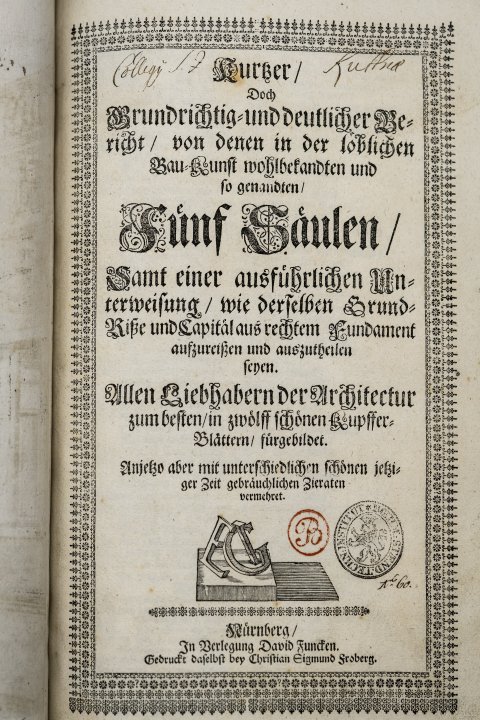 Collegÿ S J
Kurtzer/
Doch
Grundrichtig- und deutlicher Be-
richt/ von denen in der löblichen
Bau-Kunst wohlbekandten und
so genandten/
Fünf Säulen/
Samt einer ausführlichen Un-
terweisung/ wie derselben Grund-
Riße und Capitäl aus rechtem Fundament
aufzureißen und auszutheilen
seyen.
Allen Liebhabern der Architectur
zum besten/ in zwölff schönen Kupffer-
Blättern/ fürgebildet.
Anjetzo aber mit unterschiedlichen schönen jetzi-
ger Zeit gebräuchlichen Zieraten
vermehret.
B
No 60.
Nürnberg/
In Verlegung David Funcken.
Gedruckt daselbst bey Christian Sigmund Froberg.